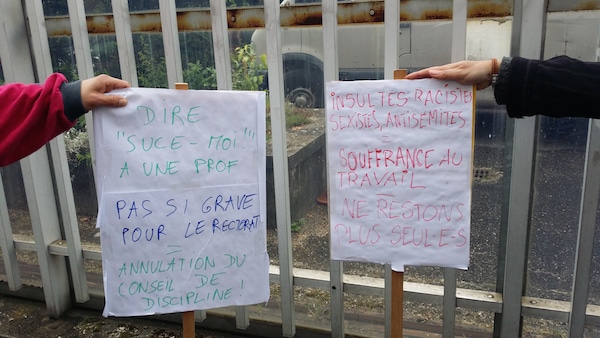 DIRE
"SUCE-MOI!"
A UNE PROF
=
PAS SI GRAVE
POUR LE RECTORAT
=
ANNULATION DU
CONSEIL DE
DISCIPLINE!
INSULTES RACISTES
SEXISTES, ANTISEMITES
SOUFFRANCE AU
TRAVAIL
NE RESTONS
PLUS SEUL·E·S